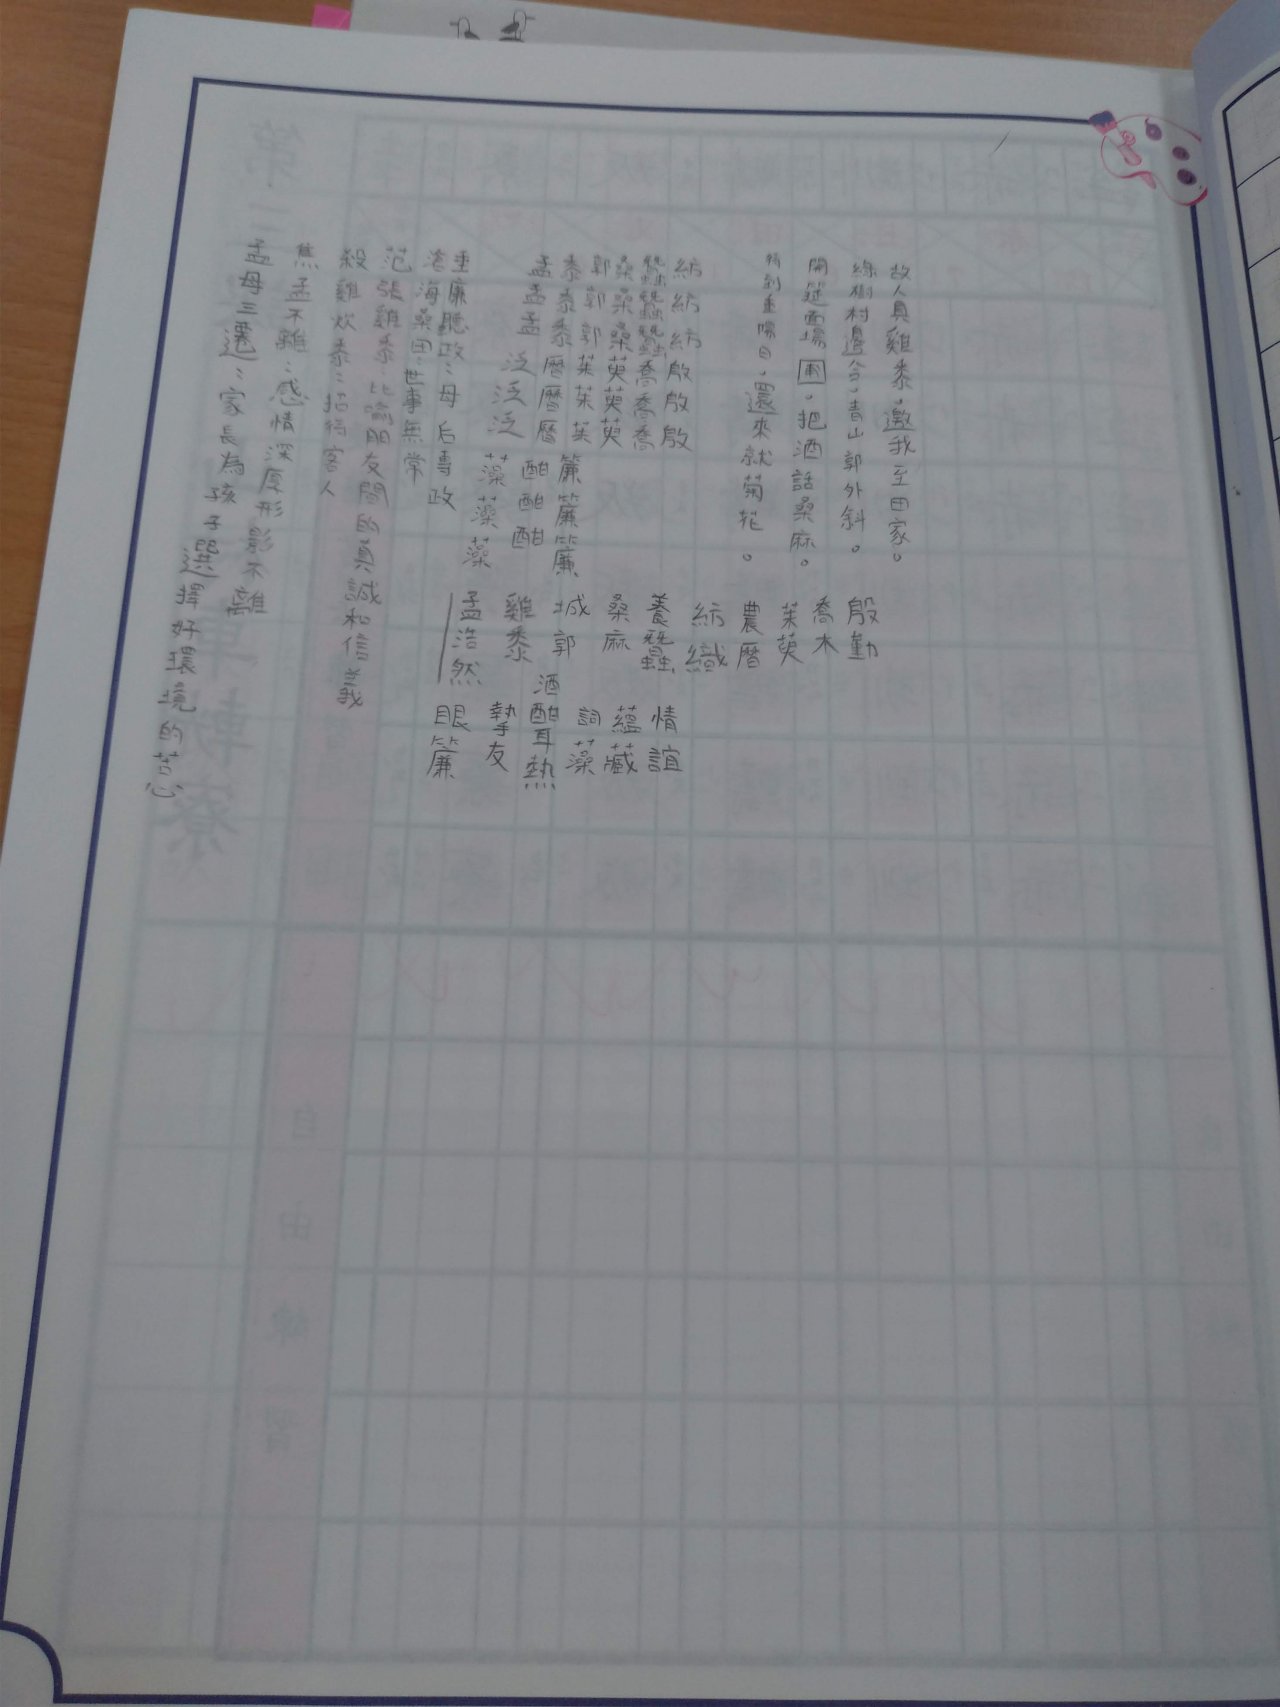 故人具雞黍，邀我至田家。
綠樹村邊合，青山郭外斜。
開筵面場圃，把酒話桑麻。
待到重陽日，還來就菊花。
紡紡紡殷殷殷
蠶蠶蠶喬喬喬
桑桑桑萸萸萸
郭郭郭茱茱茱
黍黍黍曆曆曆
孟孟孟泛泛泛
簾簾簾
酣酣酣
藻藻藻
殷勤
喬木
茱萸
農曆
紡織
養蠶
桑麻
城郭
雞黍
孟浩然
情誼
蘊藏
詞藻
酒酣耳熱
摯友
眼簾
垂廉聽政：母后專政
滄海桑田：世事無常
范張雞黍：比喻朋友間的真誠和信義
殺雞炊黍：招待客人
焦孟不離：感情深厚形影不離
孟母三遷：家長為孩子選擇好環境的苦心